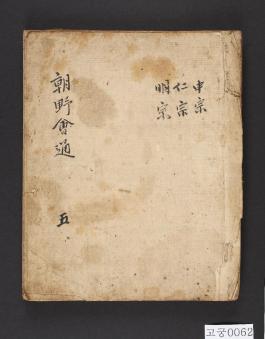 中宗
仁宗
明宗
朝野會通
五
고궁0062